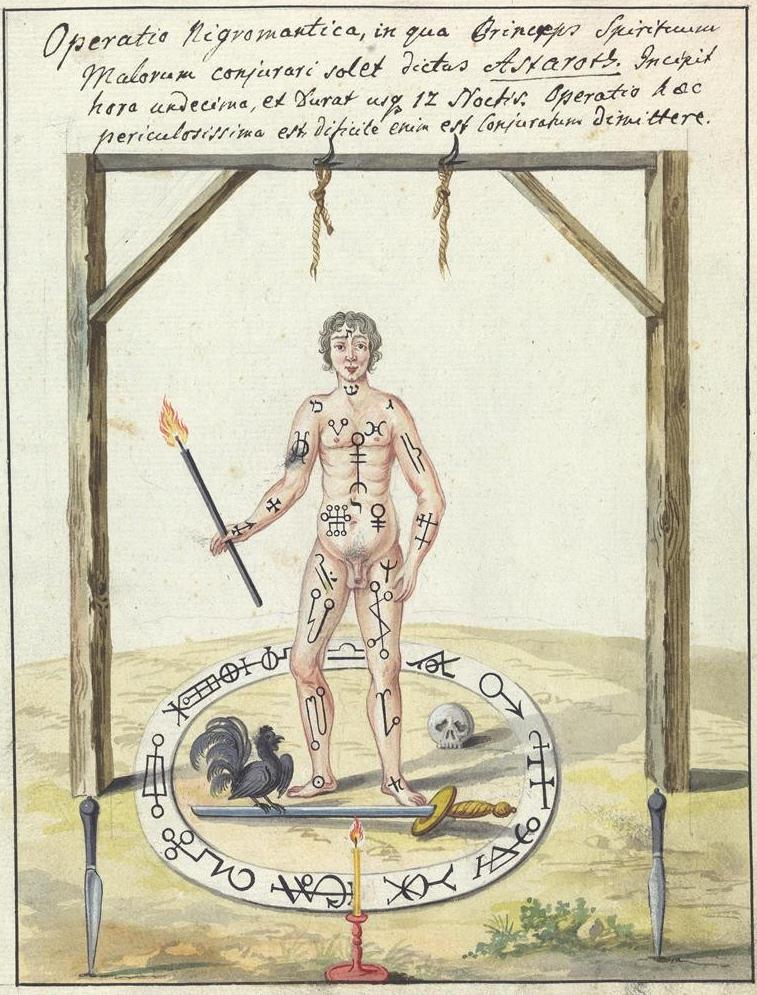 Operatio Nigromantica, in qua Princeps Spirituum
Malorum conjurari solet dictus Astaroth. Incipit
hora undecima, et Durat usq 12 Noctis. Operatio hæc
periculosissima est, dificile enim est Conjuratum dimittere.